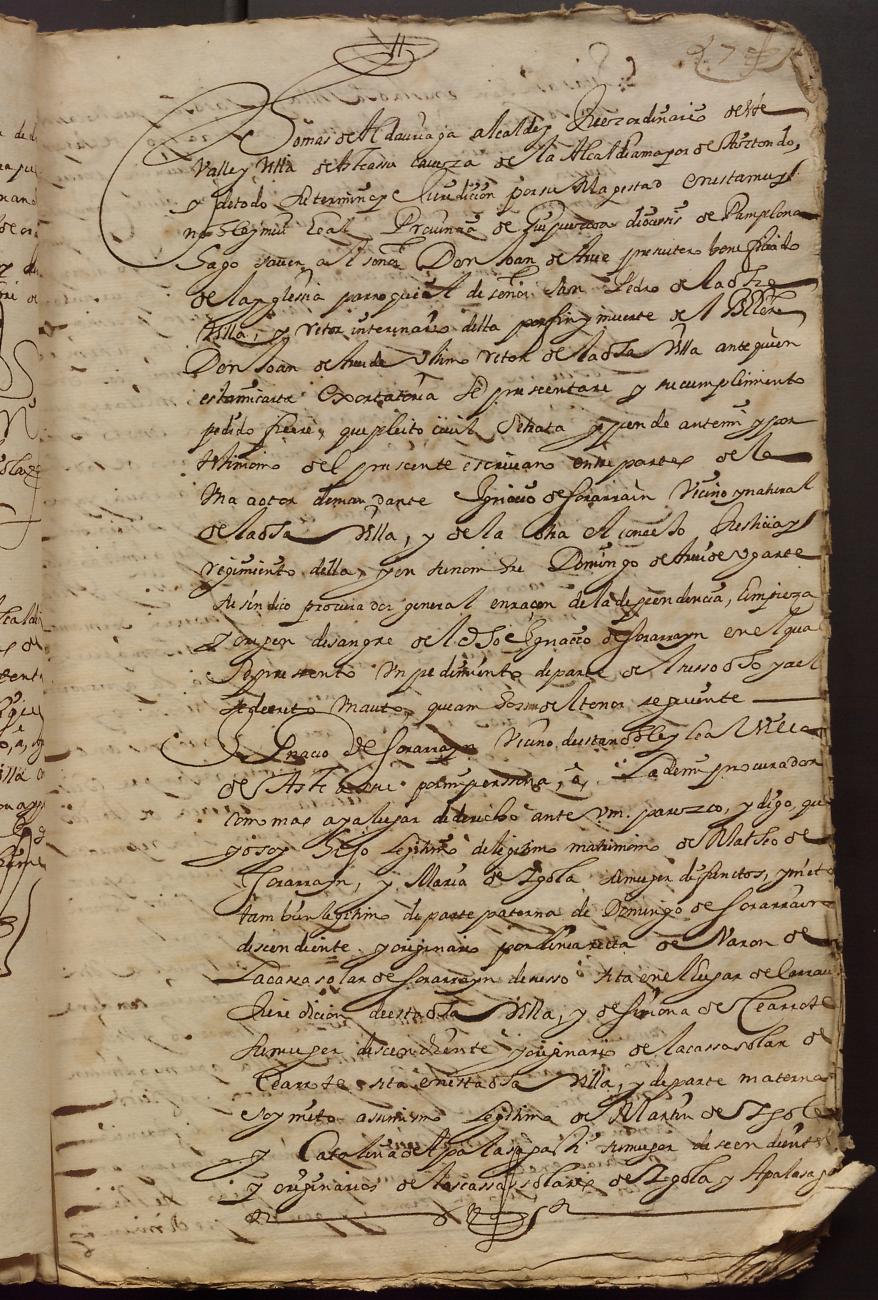 Tomas de Aldauraga alcalde y Juez ordinario deste
Valle y Villa de Asteasu caueza de la Alcaldia mayor de Aiztondo,
y de todo su termino y Juridicion por su Magestad en esta muy
noble y muy Leal Prouinçia de Guipuzcoa diocesis de Pamplona
hago sauer al señor Don Joan de presuitero beneficiado
de la yglesia parroquial de señor San Pedro de la dha
Villa, y retor interinario della por fin y muerte de el
Don Joan de ultimo retor de la dha Villa ante quien
esta mi carta exortatoria se presentare y su cumplimiento
pedido fuere, que pleito ciuil se trata y pende ante mi y por
testimonio de el presente escriuano entre partes de la
Vna actor demandante Ignacio de Sorarrain Vecino y natural
de la dha Villa, y de la otra el conçejo Justicia y
regimiento della, y en su nombre Domingo de Ugarte
su sindico procurador general en raçon de la dependencia, limpieza
y origen de sangre de el dho Ignacio de Sorarrayn en el qual
se presento Un pedimiento de parte de el susso dho y a el
se decreto Un auto, que am bos son del tenor seguiente
Ignacio de Sorarrayn Vecino de esta noble y leal Villa
de Asteasu por mi perssona, a de mi procurador
como mas aya lugar de derecho ante Vm. parezco, y digo, que
yo soy hijo legitimo de legitimo matrimonio de Matheo de
Sorarrayn, y Maria de Ygola su muger defunctos, y nieto
tambien legitimo de parte paterna de Domingo de Sorarrain
descendiente y originario por linea recta de Varon de
La cassa solar de Sorarrayn de susso sita en el lugar de Larraul
Juridicion de esta dha Villa, y de Simona de Cearrote
su muger descendiente y originario de la cassa solar de
Cearrote sita en esta dha Villa, y de parte materna
soy nieto assimismo legitimo de Martin de Ygola
y Catalina de Apalasagasti su muger descendientes
y originarios de las cassas solares de Ygola y Apalasaga